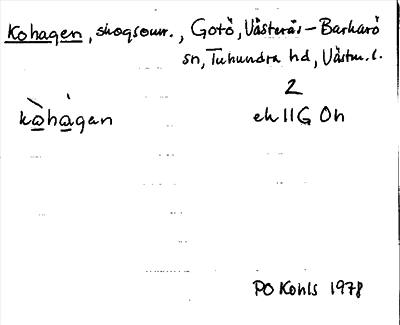 Kohagen, skogsomr., Gotö, Västerås-Barkarö
sn, Tuhundra hd, Västm. l.
2
kòhágan ek 11G 0h
PO Kohls 1978